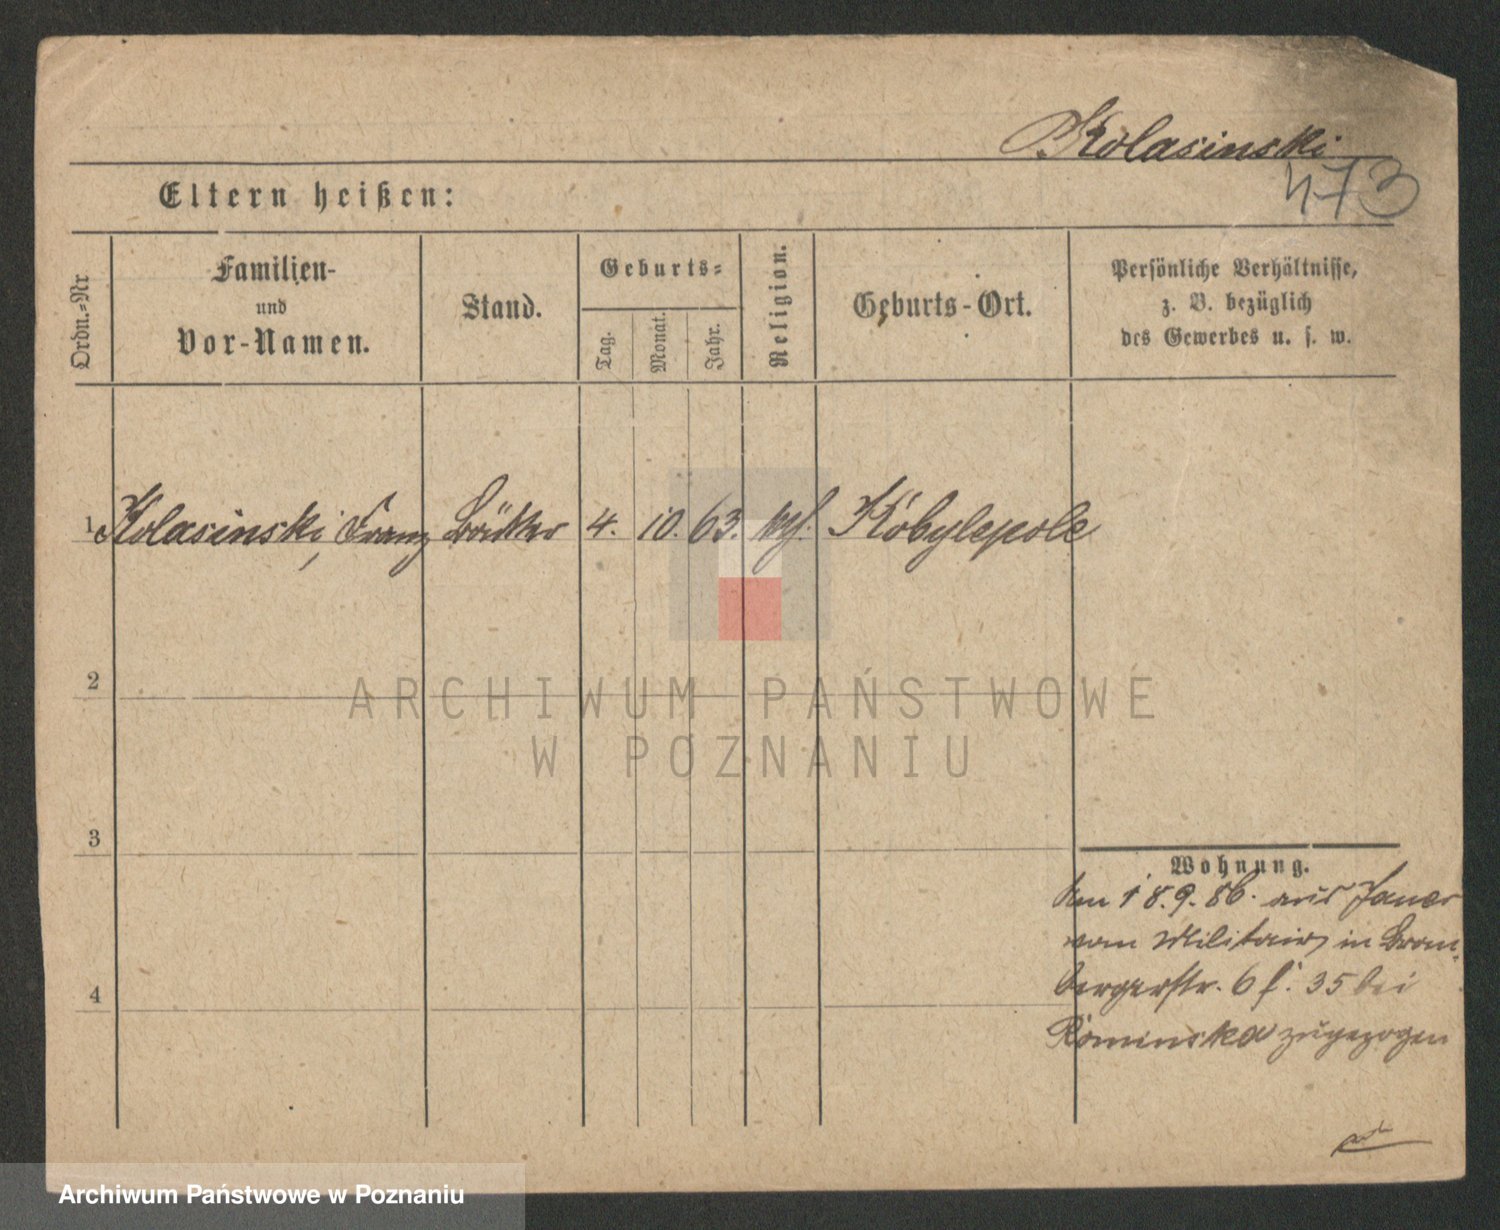 Kolasinski
473
Eltern heißen:
Ordn.-Nr
Familien-
und
Vor-Namen.
Stand.
Geburts-
Tag.
Monat.
Jahr.
Religion.
Geburts-Ort.
Persönliche Verhältnisse,
z. B. bezüglich
des Gewerbes u. s. w.
1 Kolasinski, Franz Böttker 4. 10. 63. Kobylepole
2
ARCHIWUM PAŃSTWOWE
W POZNANIU
3
Wohnung.
18.9.86. aus Jauer
vom Militair in Brom-
bergerstr. 6 f. 35 bei
Rominska zugezogen
4
Archiwum Państwowe w Poznaniu